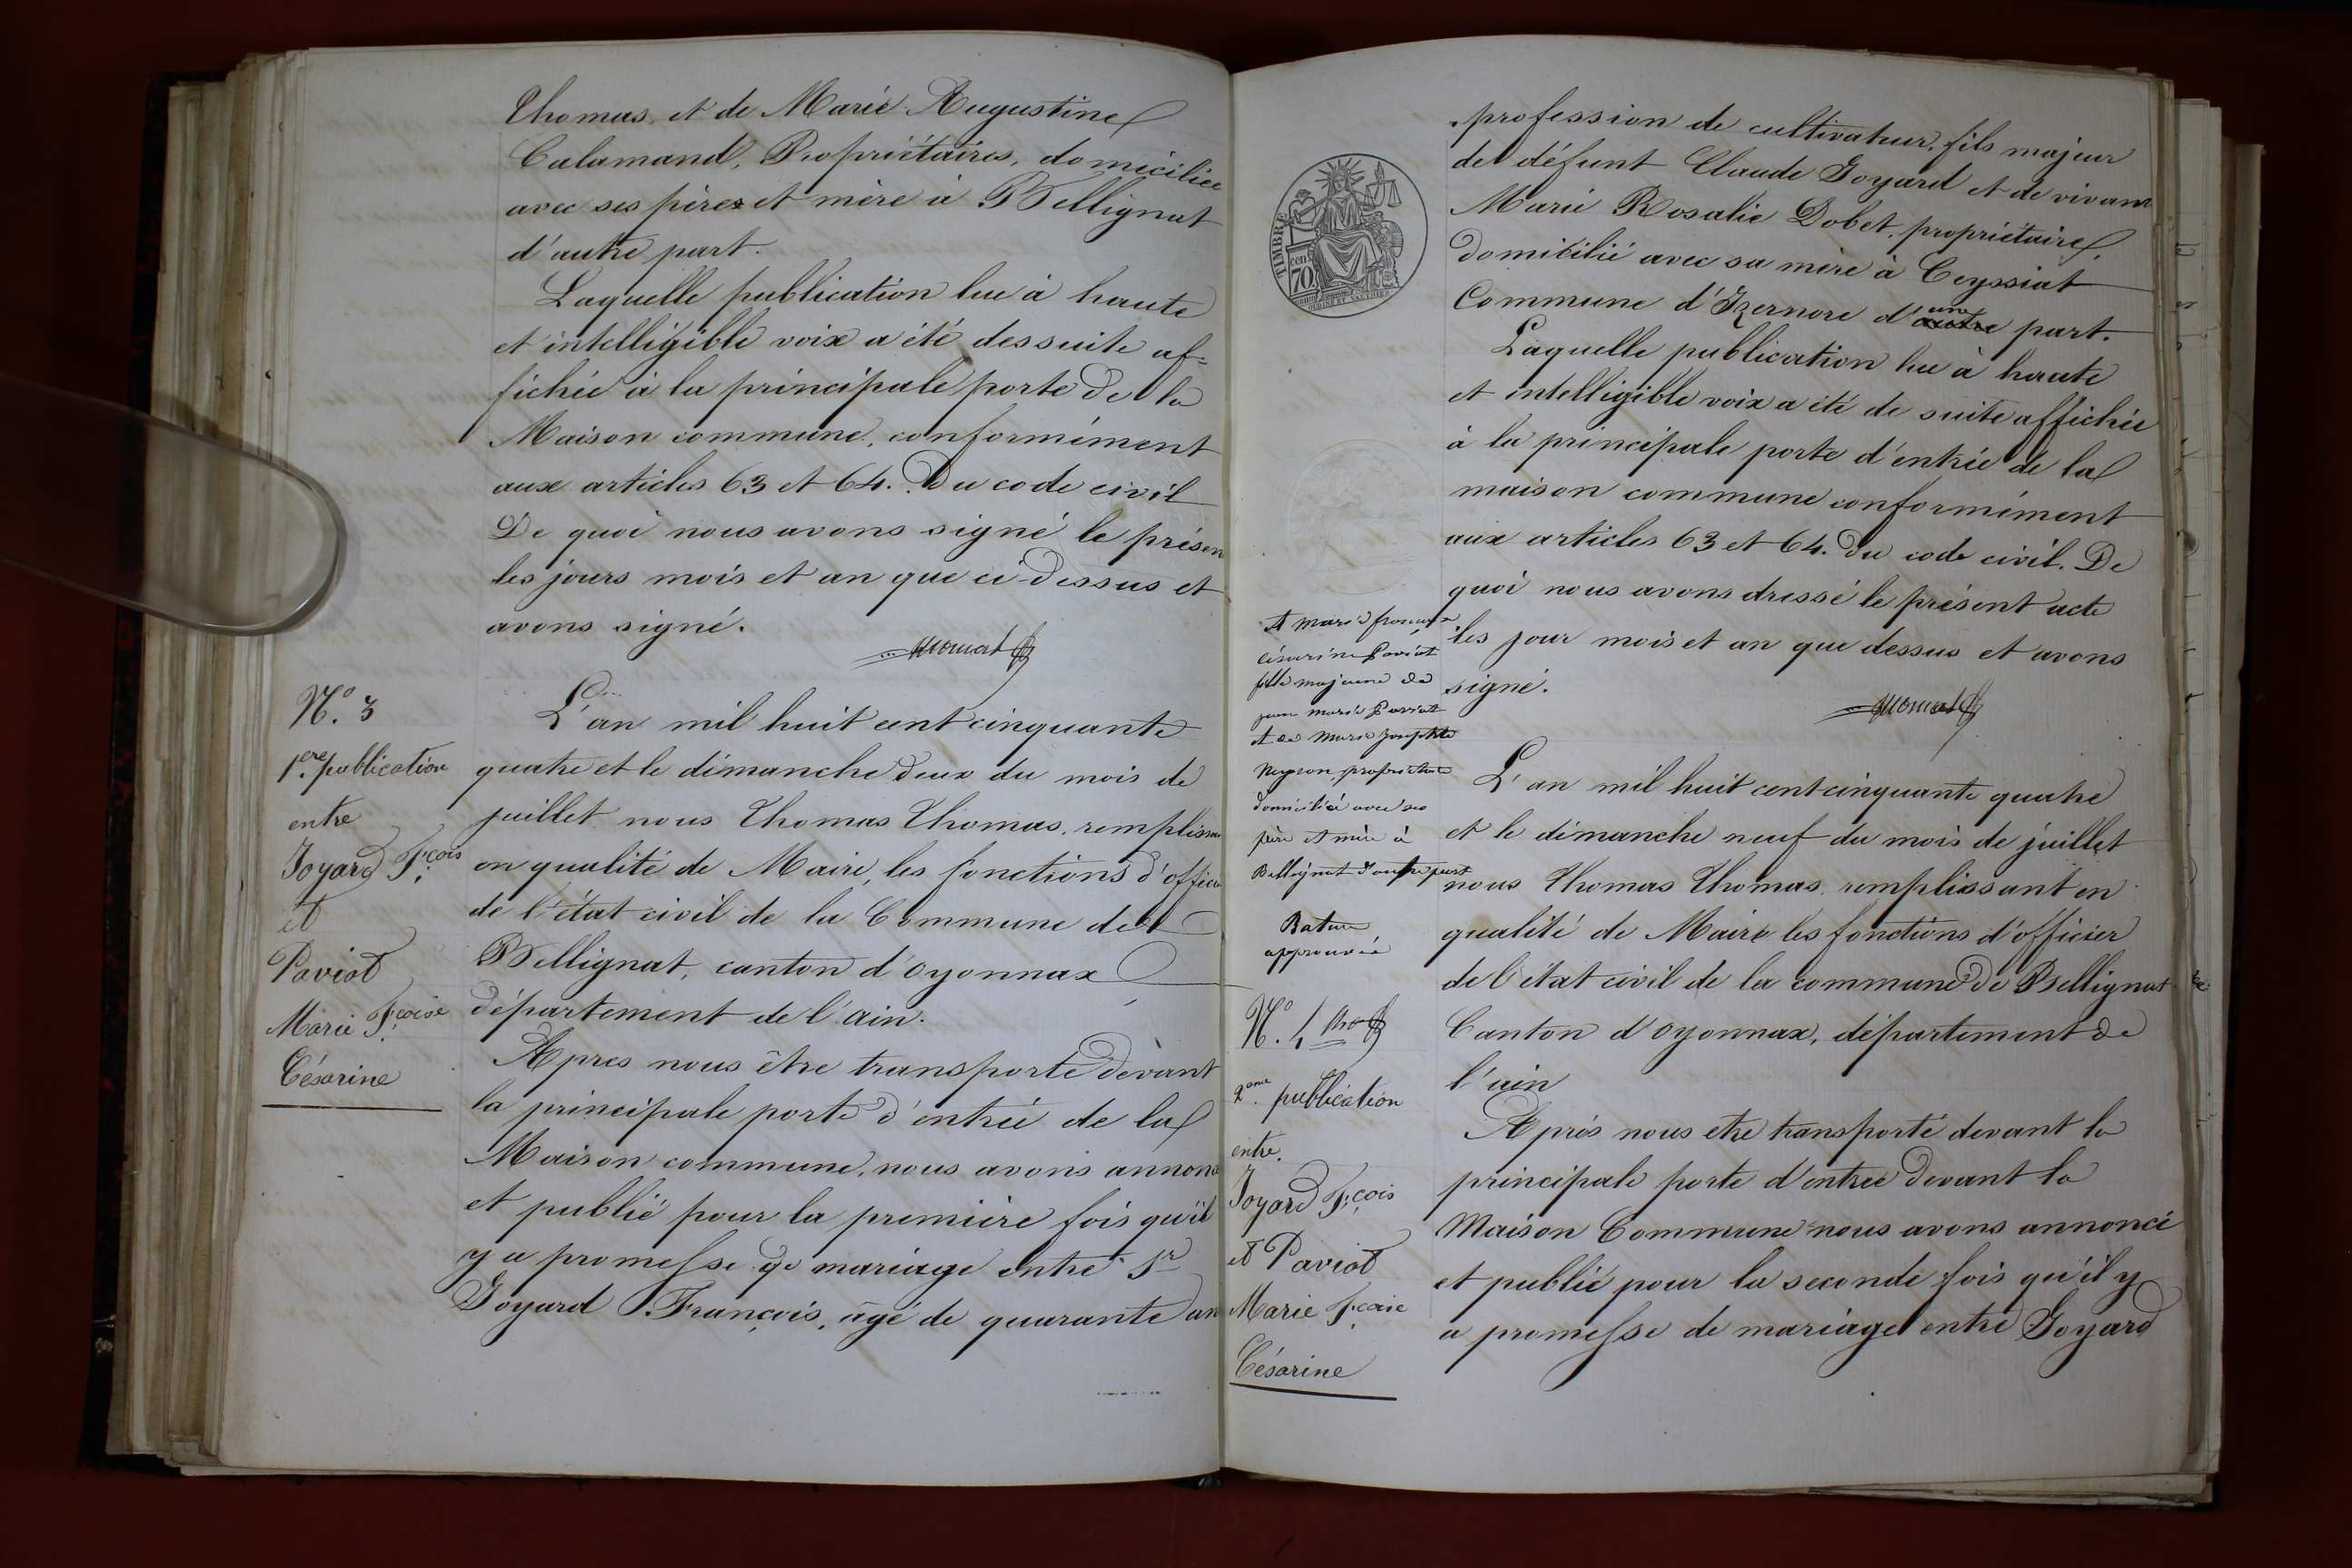 Thomas, et de Marie Augustine
Calamand, Propriétaires, domiciliée
avec ses pères et mère à Bellignat
d'autre part.
Laquelle publication lue à haute
et intelligible voix a été dessuite af=
fichée à la principale porte de la
Maison commune, conformément
aux articles 63 et 64. Du code civil
De quoi nous avons signé le présen
les jours mois et an que ci-dessus et
avons signé.
Thomas
N° 3
1ère publication
entre
Joyard Fçois
et
Paviot
Marie Fçoise
Césarine
L'an mil huit cent cinquante
quatre et le dimanche deux du mois de
juillet nous Thomas Thomas, remplissa
en qualité de Maire, les fonctions d'offici
de l'état civil de la Commune de
Bellignat, canton d'oyonnax
département de l'ain.
Apres nous être transporté devant
la principale porte d'entrée de la
Maison commune, nous avons annon
et publié pour la première fois qu'il
y a promesse de mariage entre Sr
Joyard François, âgé de quarante an
TIMBRE
cen
70
profession de cultivateur, fils majeur
de défunt Claude Joyard et de vivan
Marie Rosalie Dobet, propriétaire,
domicilié avec sa mère à Ceyssiat
Commune d'Izernore d'autre une part.
Laquelle publication lue à haute
et intelligible voix a été de suite affichée
à la principale porte d'entrée de la
maison commune conformément
aux articles 63 et 64. du code civil. De
quoi nous avons dressé le présent acte
les jour mois et an que dessus et avons
signé.
Thomas
et marie
césarine Paviot
fille majeure de
jean marie Paviot
et de marie josephte
Neyron, propriétaire
domiciliée avec ses
père et mère à
Bellignat d'autre part
Rature
approuvée
N° 4
2eme publication
entre
Joyard Fçois
et Paviot
Marie Fçoise
Césarine
L'an mil huit cent cinquante quatre
et le dimanche neuf du mois de juillet
nous Thomas Thomas remplissant en
qualité de Maire les fonctions d'officier
de l'état civil de la commune de Bellignat
Canton d'oyonnax, département de
l'ain
Après nous etre transporté devant la
principale porte d'entree devant la
Maison Commune nous avons annoncé
et publié pour la seconde fois qu'il y
a promesse de mariage entre Joyard